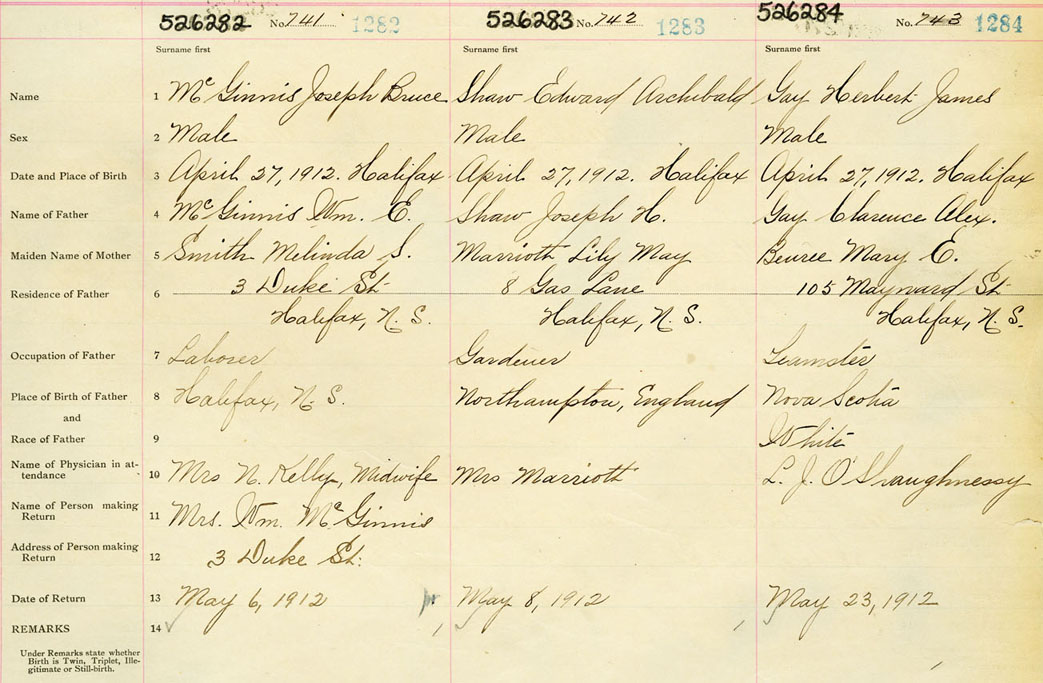 526282 No. 741 1282 526283 No. 742 1283 526284 No. 743 1284
Surname first Surname first Surname first
Name 1 McGinnis Joseph Bruce Shaw Edward Archibald Gay Herbert James
Sex 2 Male Male Male
Date and Place of Birth 3 April 27, 1912. Halifax April 27, 1912. Halifax April 27, 1912. Halifax
Name of Father 4 McGinnis Wm. E. Shaw Joseph H. Gay Clarence Alex.
Maiden Name of Mother 5 Smith Melinda S. Marrioth Lily May Mary E.
Residence of Father 6 3 Duke St. 8 Gas Lane 105 Maynard St
Halifax, N. S. Halifax, N. S. Halifax, N. S.
Occupation of Father 7 Laborer Gardener Teamster
Place of Birth of Father 8 Halifax, N. S. Northampton, England Nova Scotia
and
Race of Father 9 White
Name of Physician in at-
tendance 10 Mrs N. Kelly, Midwife Mrs Marrioth L. J. O'Shaughnessy
Name of Person making
Return 11 Mrs. Wm. McGinnis
Address of Person making
Return 12 3 Duke St.
Date of Return 13 May 6, 1912 May 8, 1912 May 23, 1912
REMARKS 14
Under Remarks state whether
Birth is Twin, Triplet, Ille-
gitimate or Still-birth.